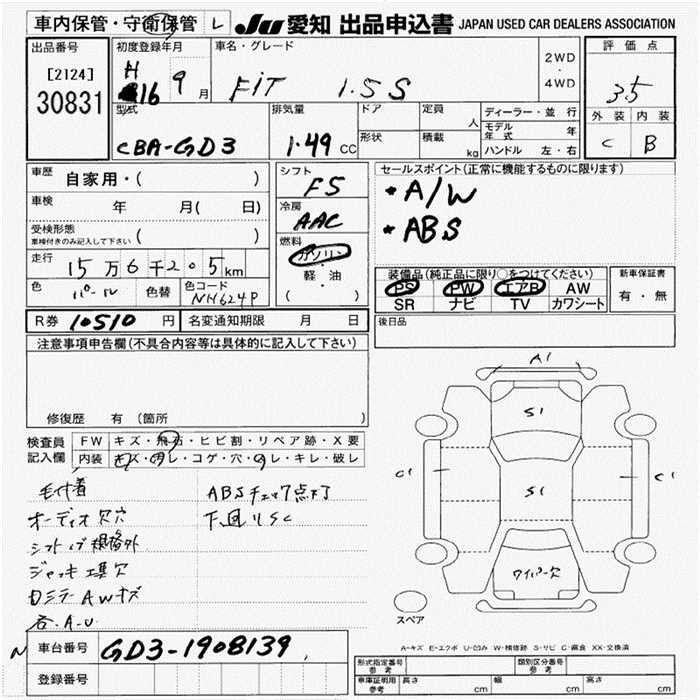 車内保管・守衛保管 レ JU 愛知 出品申込書 JAPAN USED CAR DEALERS ASSOCIATION
出品番号 初度登録年月 車名・グレード 2WD ・ 4WD 評価点
[2124] H 16 9月 FiT 1.5 S 3.5
30831 型式 排気量 ドア 定員 人 ディーラー・並行 外装 内装
CBA-GD3 1.49 CC 形状 積載 kg モデル年式 年 C B
ハンドル 左・右
車歴 自家用・( ) シフト F5 セールスポイント(正常に機能するものに限ります)
車検 年 月( 日) 冷房 AAC ・A/W
受検形態 車検付きのみ記入して下さい ( ) 燃料 ガソリン ・ABS
走行 15万6千205km ・軽・油 ( ) 装備品(純正品に限り○をつけてください) 新車保証書
色 パール 色替 色コード NH624P PS PW エアB AW 有・無
SR ナビ TV カワシート
R券 10510 円 名変通知期限 月 日 後日品
注意事項申告欄(不具合内容等は具体的に記入して下さい)
修復歴 有(箇所 )
検査員 FW キズ・飛石・ヒビ割・リペア跡・X要
記入欄 内装 キズ・ヨゴレ・コゲ・穴・スレ・キレ・破レ
ABSチェック点灯
オーディオ欠穴 下回りSC
シフトノブ規格外
ジャッキ工具欠
Dミラー AWキズ
各A・U
A1
S1
C1 S1 C1
ワイパー欠
スペア
A-キズ E-エクボ U-凹み W-補修跡 S-サビ C-腐食 XX-交換済
車台番号 GD3-1908139
登録番号
形式指定番号 参考 類別区分番号 参考
車庫証明用 参考 長さ cm 幅 cm 高さ cm